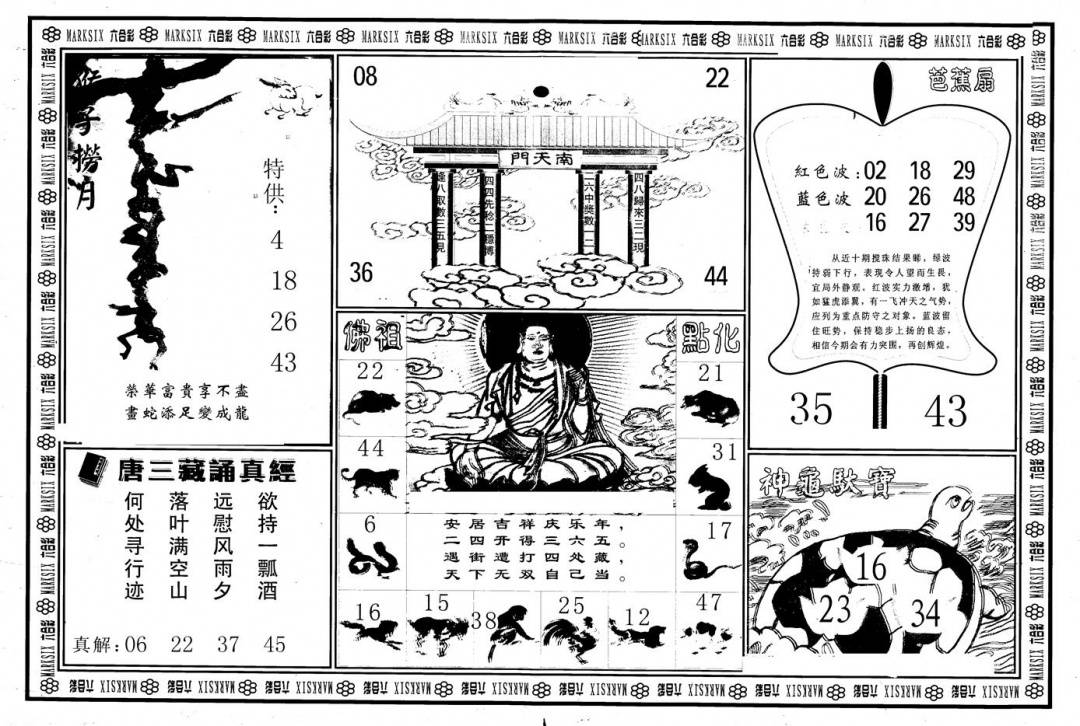 MARKSIX 六合彩 MARKSIX 六合彩 MARKSIX 六合彩 MARKSIX 六合彩 MARKSIX 六合彩 MARKSIX 六合彩 MARKSIX 六合彩 MARKSIX 六合彩 MARKSIX 六合彩 MARKSIX 六合彩
猴子撈月
特供：
4
18
26
43
榮華富貴享不盡
畫蛇添足變成龍
08
22
南天門
逢八取數三五見
四四先稔一穩博
二六中獎數一二
四八歸來三二現
36
44
芭蕉扇
紅色波：02 18 29
藍色波 20 26 48
16 27 39
从近十期搅珠结果睇，绿波
持弱下行，表现令人望而生畏，
宜局外静观。红波实力激增，犹
如猛虎添翼，有一飞冲天之气势，
应列为重点防守之对象。蓝波留
住旺势，保持稳步上扬的良态，
相信今期会有力突围，再创辉煌。
35
43
佛祖
點化
22
21
44
31
6
17
安居吉祥庆乐年，
二四开得三六五。
遇街遭打四处藏，
天下无双自己当。
16
15
38
25
12
47
唐三藏誦真經
欲持一瓢酒
远慰风雨夕
落叶满空山
何处寻行迹
真解：06 22 37 45
神龜馱寶
16
23
34